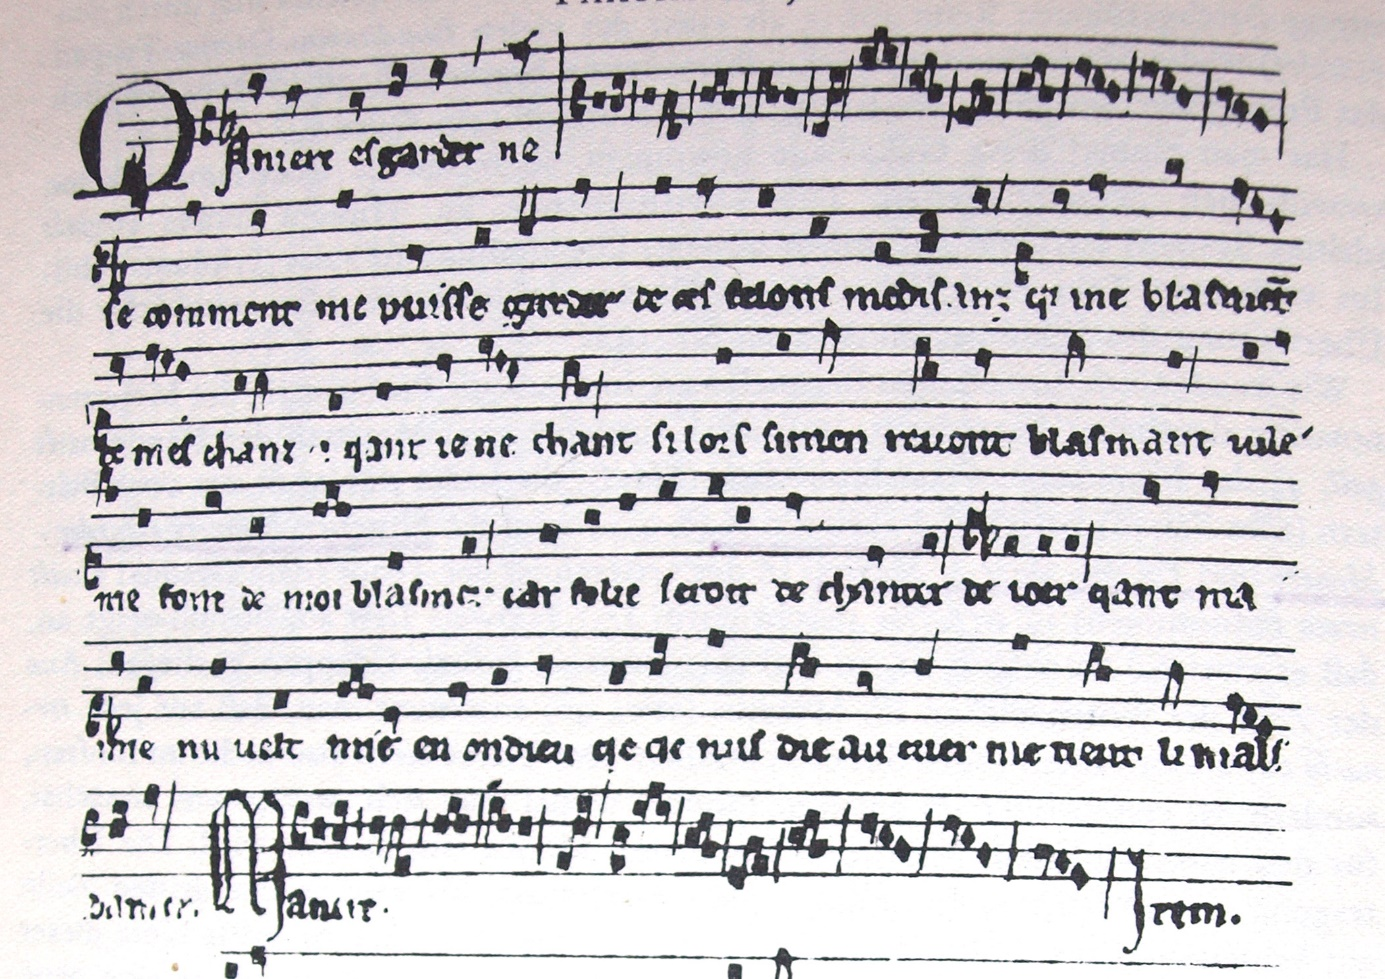 Q Aniere esgarder ne
se comment me puisse garder de ces felons medisanz qi me blasment
de mes chanz qant ie ne chant si lors si men revont blasmant vile
me font de moi blasme car folie seroit de chanter de ioer qant ma
mie nu velt mie en ondieu qe qe nus die au cuer me tient li mals
damer. M aniere. Item.